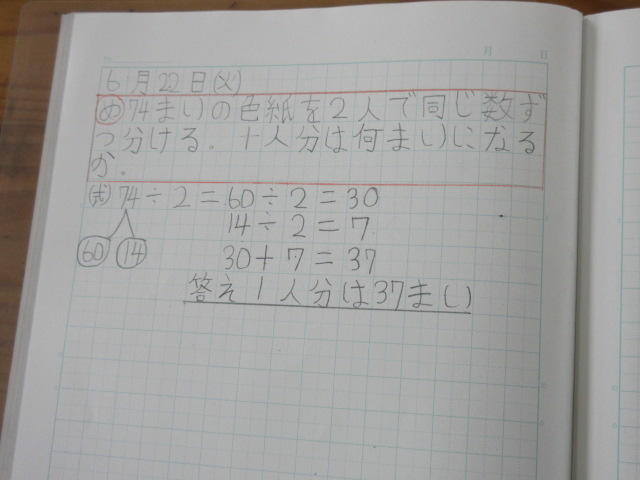 月 日
6月22日(火)
め 74まいの色紙を2人で同じ数ず
つ分ける。一人分は何まいになる
か。
式 74÷2=60÷2=30
14÷2=7
60 14
30+7=37
答え1人分は37まい